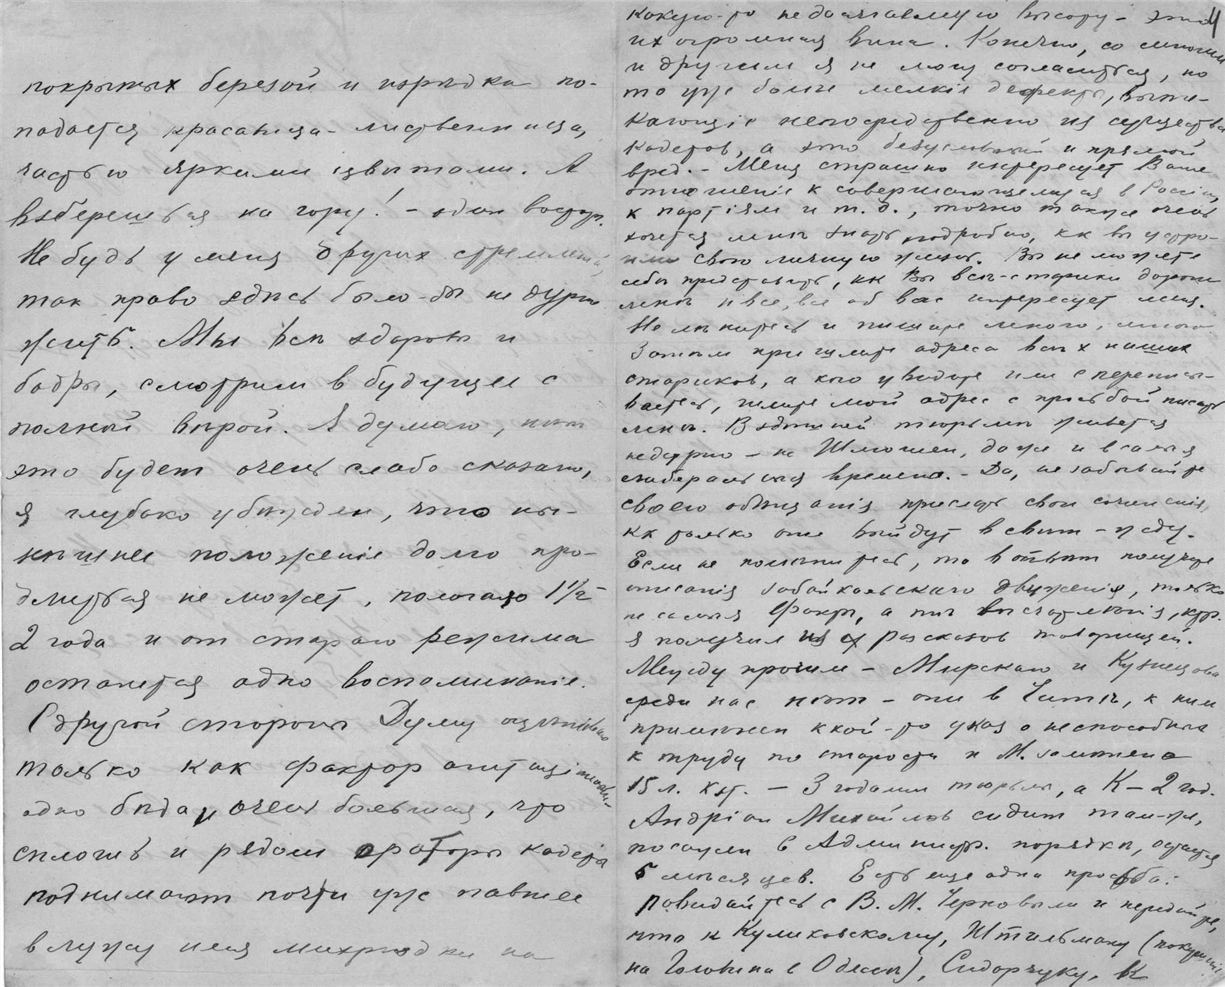 покрытых березой и изрѣдка по-
падается красавица-лиственница,
часть ю яркими цвѣтами. А
взберешься на гору! - один восторг.
Не будь у меня других стремленій,
так право здѣсь было-бы не дурно
жить. Мы всѣ здоровы и
бодры, смотрим в будущее с
полной вѣрой. Я думаю, нѣт
это будет очень слабо сказано,
я глубоко убѣжден, что ны-
нѣшнее положеніе долго про-
длиться не может, полагаю 1½-
2 года и от стараго режима
останется одно воспоминаніе.
С другой стороны Думу оцѣниваю
только как фактор агитаціонный
одно бѣда, очень большая, что
сплошь и рядом ораторы кадеты
поднимают почти уже павшее
в лужу имя на
4
какую-то недосягаемую высоту - это
их огромная вина. Конечно, со многим
и другим я не могу согласиться, но
то уже болѣе мелкіе дефекты, выте-
кающіе непосредственно из существа
кадетов, а это безусловный и прямой
вред. - Меня страшно интересует Ваше
отношеніе к совершающемуся в Россіи,
к партіям и т. д., точно также очень
хочется мнѣ знать подробно, кк вы устро-
или свою личную жизнь. Вы не можете
себѣ представить, кк Вы всѣ-старики дороги
мнѣ и все, все об вас интересует меня.
Не лѣнитесь и пишите много, много
Затѣм пришлите адреса всѣх наших
стариков, а кого увидите или с перепис-
ваетесь, шлите мой адрес с просьбой писать
мнѣ. В здѣшней тюрьмѣ живется
недурно - не Шлюшин, даже и в самыя
либеральныя времена. - Да, не забывайте
своего обѣщанія прислать свои сочиненія,
кк только они выйдут в свѣт - жду.
Если не полѣнитесь, то в отвѣт получите
описанія забайкальскаго движенія, только
не самыя факты, а тѣ впечатлѣнія, кот.
я получил из рассказов товарищей.
Между прочим - Мирскаго и Кузнецова
среди нас нѣт - они в Читѣ, к ним
примѣнен ккой-то указ о неспособных
к труду по старости и М. замѣнена
15 л. кат. - 3 годами тюрьмы, а К - 2 год.
Андріан Михайлов сидит там-же,
посажен в Админист. порядкѣ, остается
5 мѣсяцев. Есть еще одна просьба:
Повидайтесь с В. М. Черновым и передайте,
что к Куликовскому, Штильману (покушеніе
на Головина в Одессѣ), Сидорчуку, к